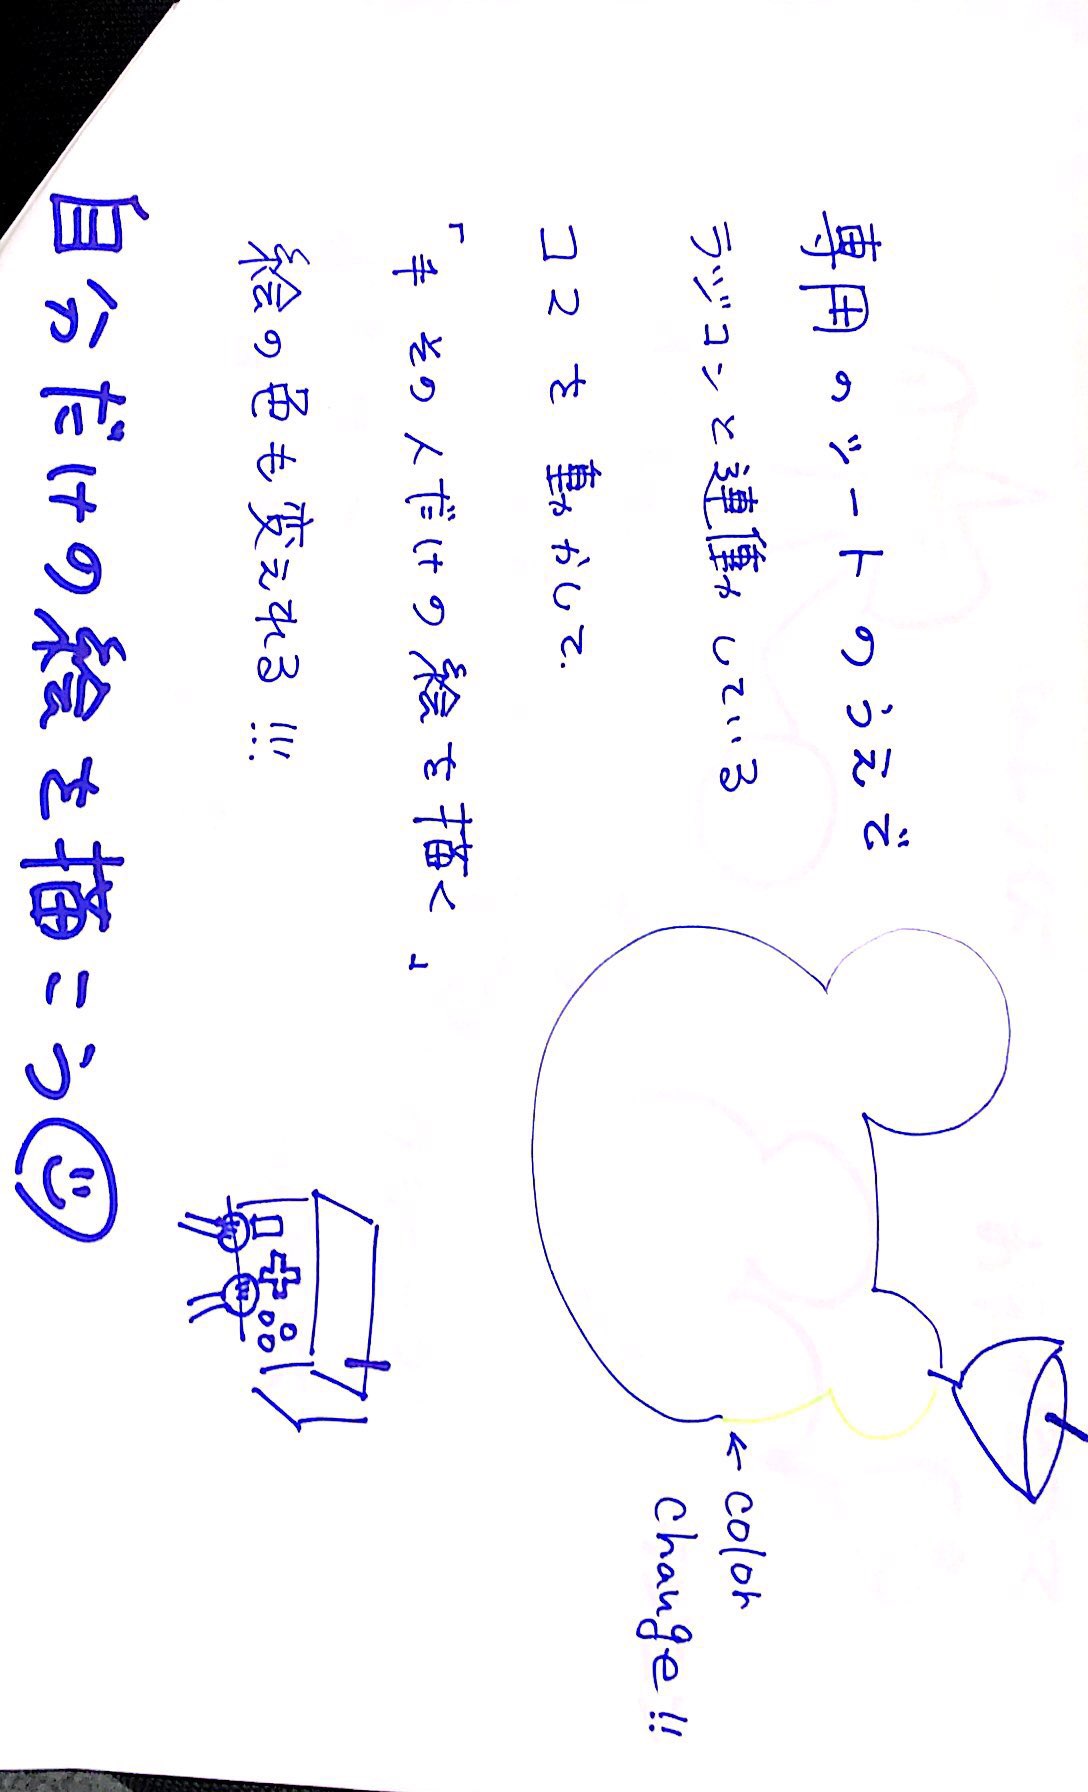 専用のシートのうえで
ラジコンと連動している
コマを動かして、
「キその人だけの絵を描く」
絵の色も変えれる!!!
自分だけの絵を描こう
← color
change!!